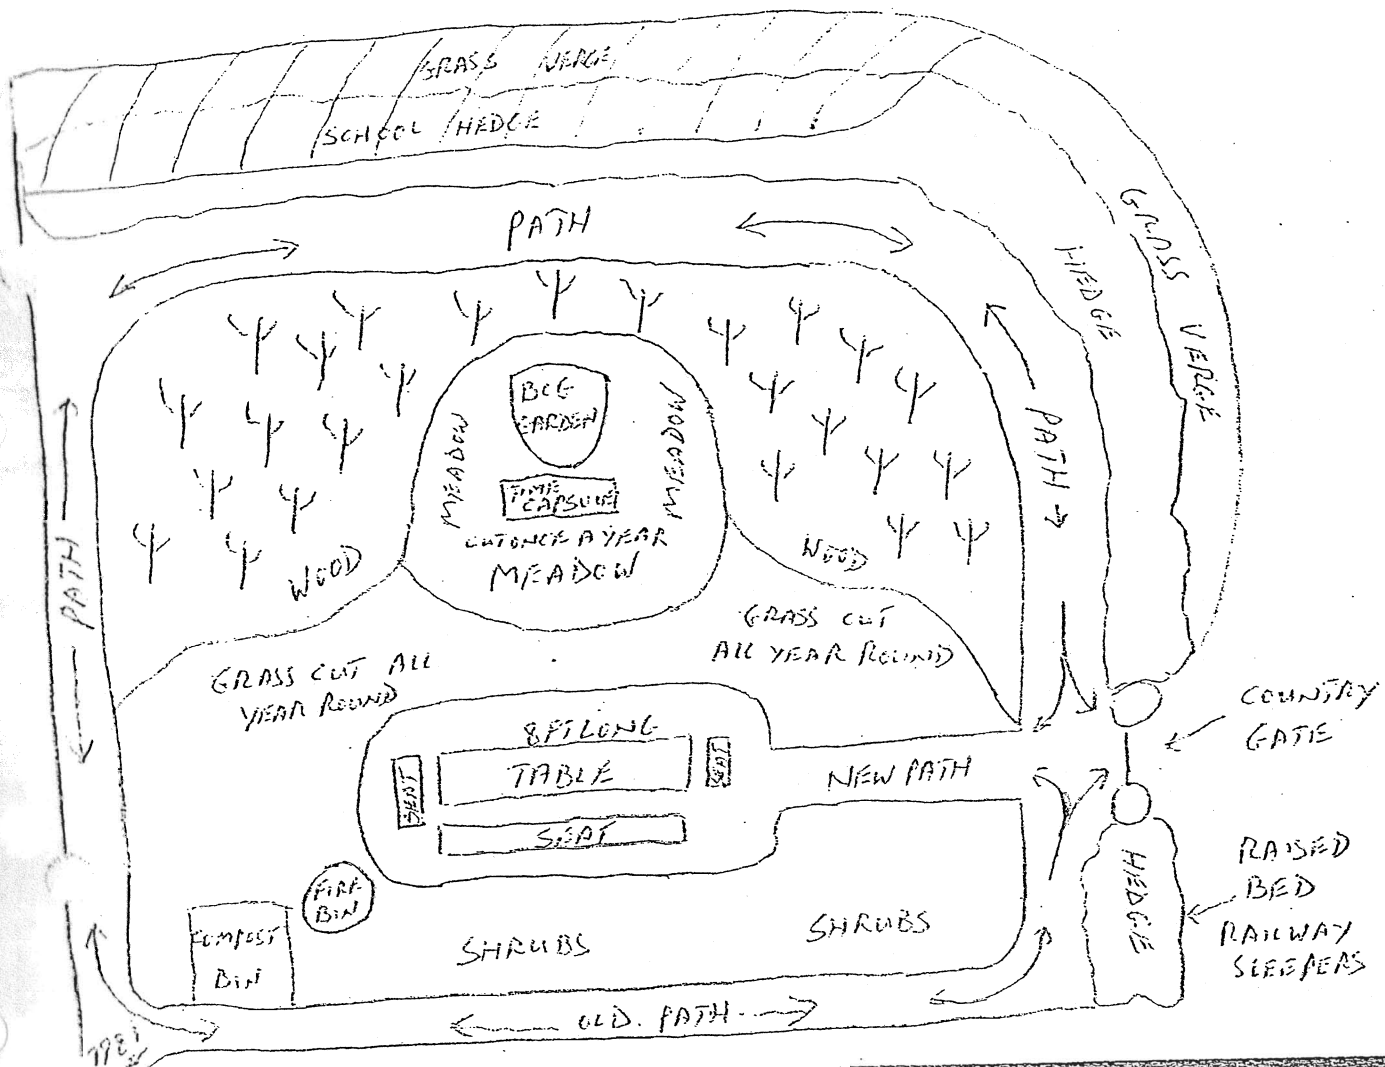 GRASS VERGE
SCHOOL HEDGE
PATH
GRASS VERGE
HEDGE
PATH
BCG
GARDEN
MEADOW
MEADOW
TIME
CAPSULE
CUT ONCE A YEAR
MEADOW
WOOD
WOOD
PATH
GRASS CUT
ALL YEAR ROUND
GRASS CUT ALL
YEAR ROUND
COUNTRY
GATE
8FT LONG
TABLE
SEAT
SEAT
SEAT
NEW PATH
RAISED
BED
RAILWAY
SLEEPERS
HEDGE
FIRE
BIN
COMPOST
BIN
SHRUBS
SHRUBS
OLD. PATH